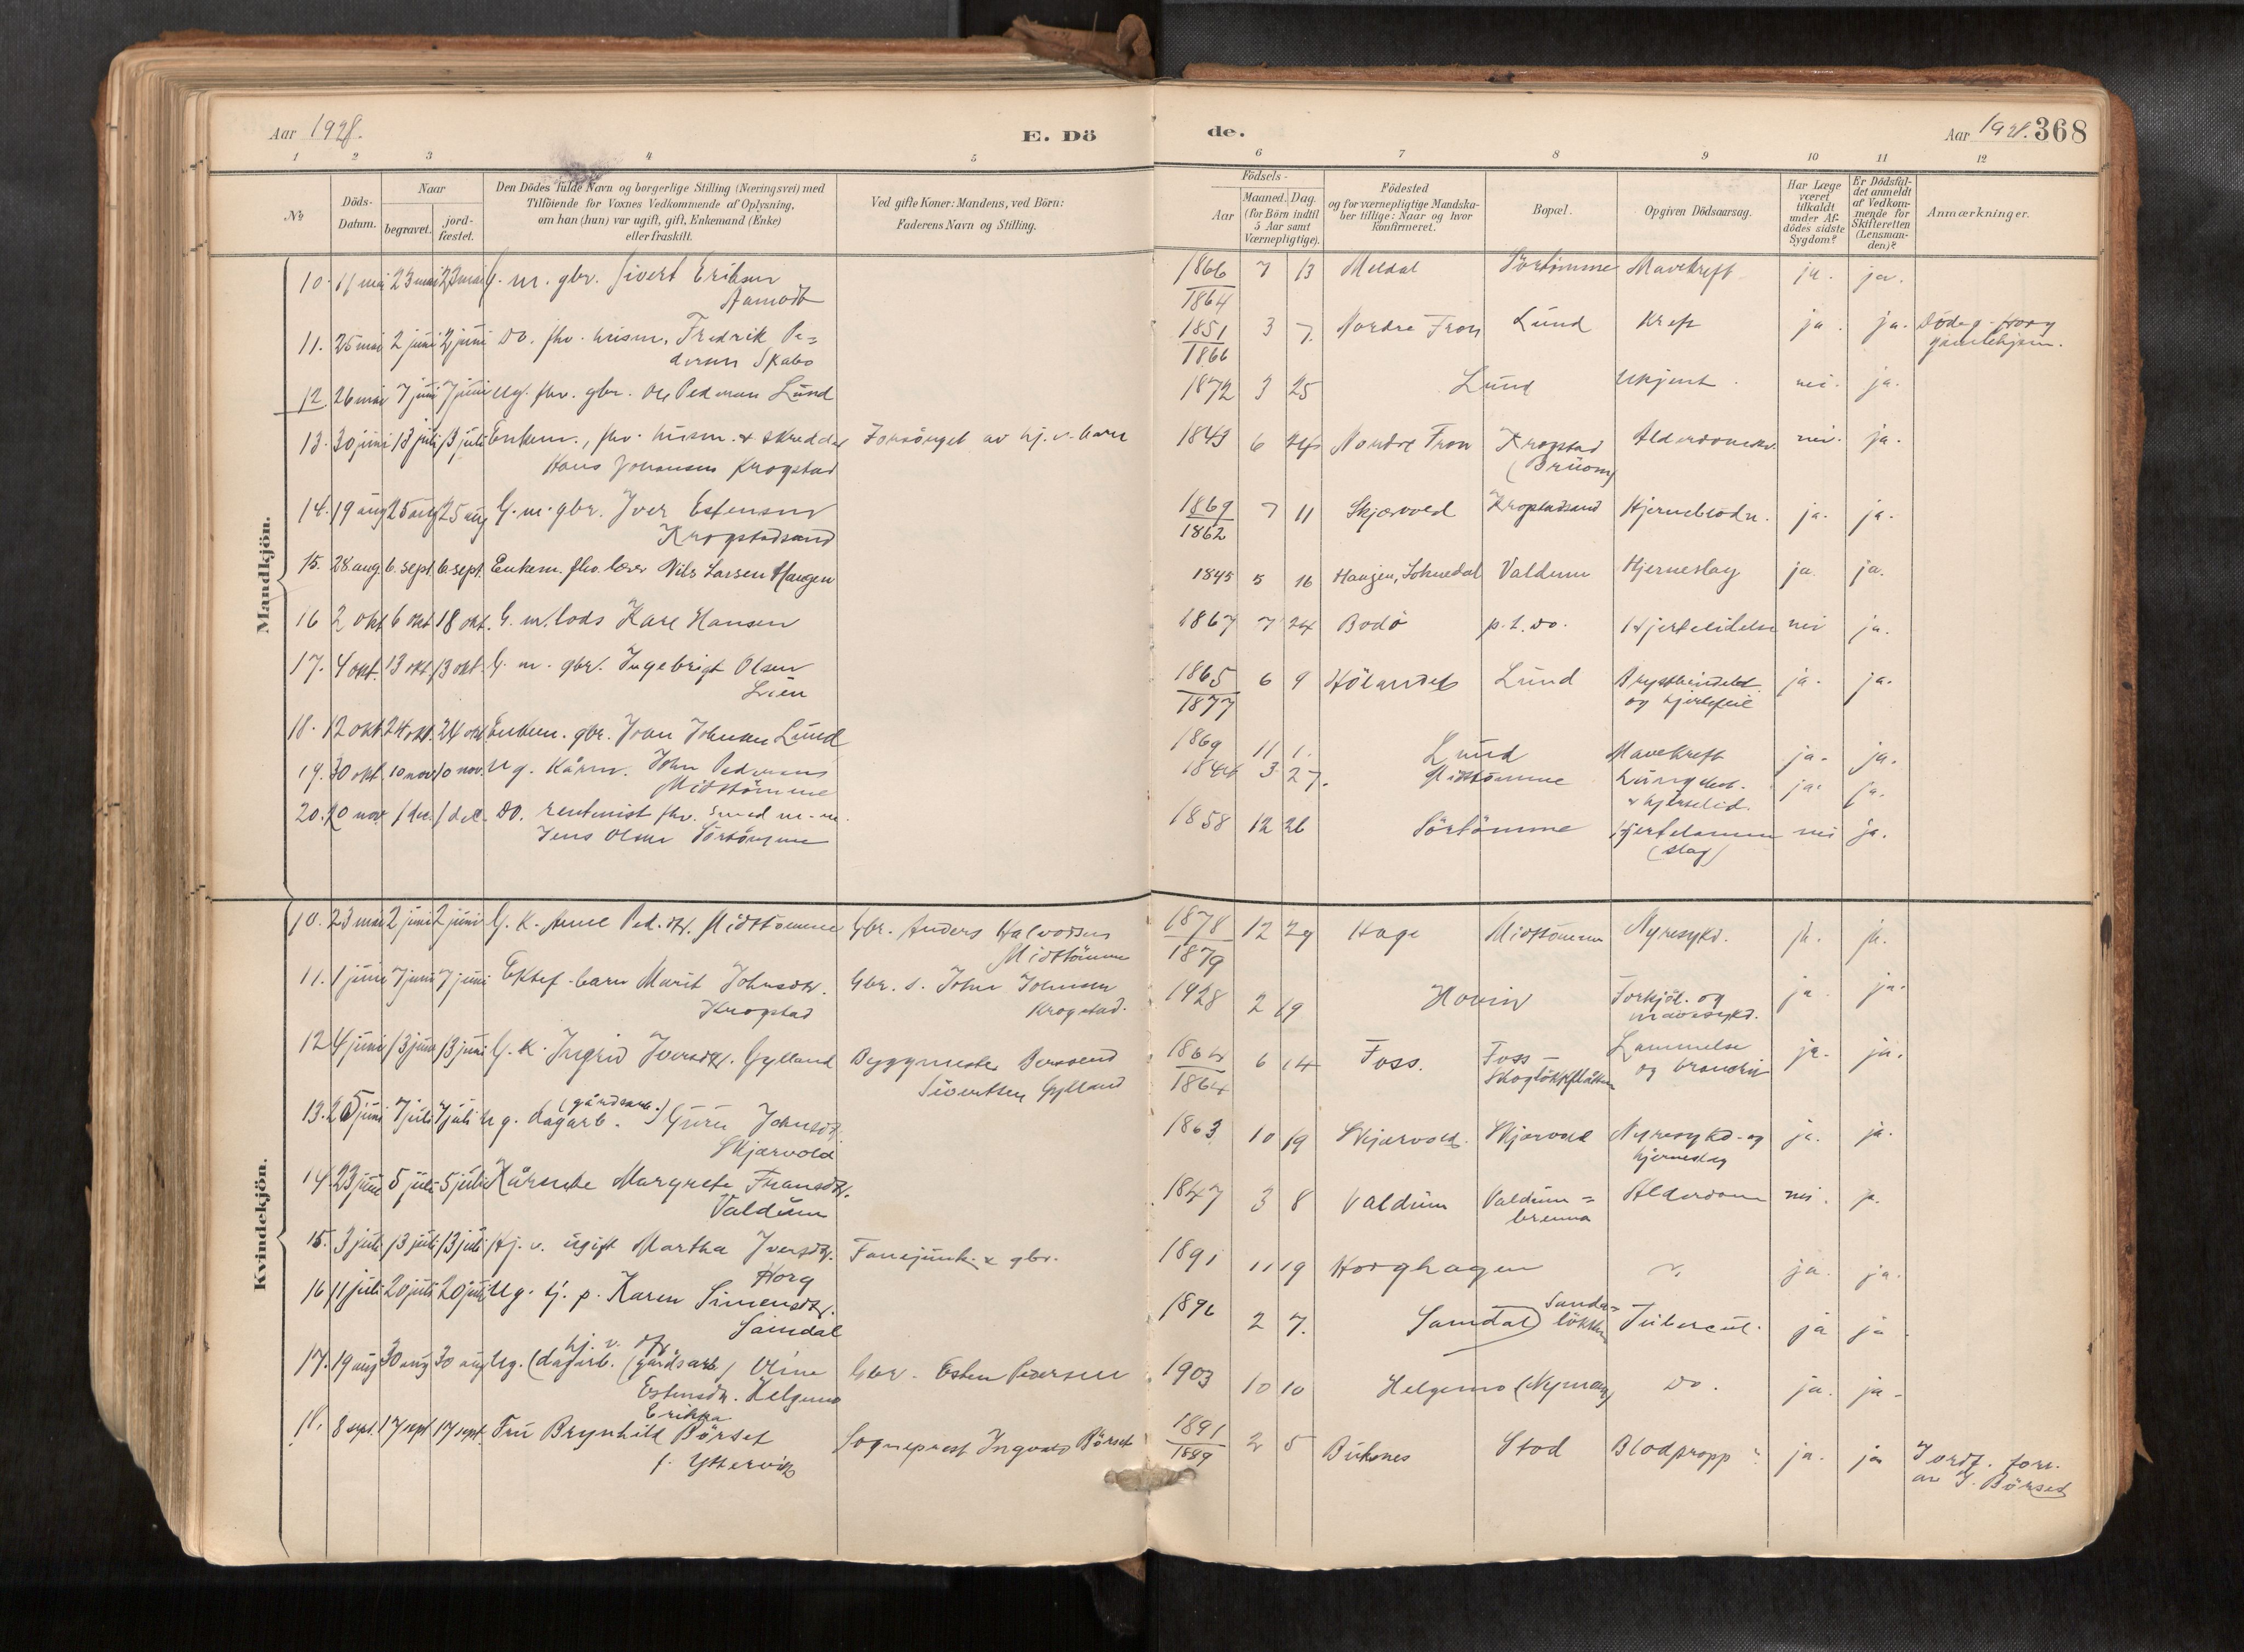 Aar 1928.
E. Dö
de.
Aar 1928. 368
1 2 3 4 5 6 7 8 9 10 11 12
No
Döds-Datum.
Naar
begravet.
jord-fæstet.
Den Dödes fulde Navn og borgerlige Stilling (Næringsvei) med
Tilföiende for Voxnes Vedkommende af Oplysning,
om han (hun) var ugift, gift, Enkemand (Enke)
eller fraskilt.
Ved gifte Koner: Mandens, ved Börn:
Faderens Navn og Stilling.
Födsels-
Aar
Maaned. Dag.
(for Börn indtil
5 Aar samt
Værnepligtige).
Födested
og for værnepligtige Mandska-
ber tillige: Naar og hvor
konfirmeret.
Bopæl.
Opgiven Dödsaarsag.
Har Læge
været
tilkaldt
under Af-
dödes sidste
Sygdom?
Er Dödsfal-
det anmeldt
af Vedkom-
mende for
Skifteretten
(Lensman-
den)?
Anmærkninger.
Mandkjön.
10. 11 mai 23 mai 23 mai G. m. gbr. Sivert Eriksen 1866 7 13 Meldal Sörtömme Mavekreft ja. ja.
Aamodt 1864
11. 25 mai 2 juni 2 juni Do. fhv. husm. Fredrik Pe= 1851 3 7. Nordre Fron Lund Kreft ja. ja. Döde g. Horg
dersen Skabo 1866 gamlehjem.
12. 26 mai 7 juni 7 juni Ug. fhv. gbr. Ole Pedersen Lund 1872 3 25 Lund Ukjent. nei. ja.
13. 30 juni 13 juli 13 juli Enkem., fhv. husm. & skredder Forsörget av hj. v. barn 1843 6 24 Nordre Fron Krogstad Alderdomssv. nei. ja.
Hans Johansen Krogstad (Bruom)
14. 19 aug 25 aug 25 aug G. m. gbr. Iver Estensen 1869 7 11 Skjærvold Krogstadsand Hjerneblödn. ja. ja.
Krogstadsand 1862
15. 28 aug. 6. sept. 6. sept. Enkem. fhv. lærer Nils Larsen Haugen 1845 5 16 Haugen, Soknedal Valdum Hjerneslag ja. ja.
16 2 okt 6 okt 18 okt. G. m. lods Karl Hansen 1867 7 24 Bodö p. t. do. Hjertelidelse nei ja.
17. 4 okt. 13 okt. 13 okt. G. m. gbr. Ingebrigt Olsen 1865 6 9 Hölandet Lund Brystbeindelt ja. ja.
Lien 1877 og hjertefeil
18. 12 okt 24 okt. 24 okt Enkem. gbr. Joan Johnsen Lund 1869 11 1. Lund Mavekreft ja. ja.
19. 30 okt. 10 nov. 10 nov. Ug. Kårm. John Pedersen 1844 3 27. Midttömme Lungebet. ja. ja.
Midttömme & hjertelid.
20. 20 nov. 1 des. 1 des. Do. rentenist fhv. smed m. m. 1858 12 26 Sörtömme Hjertelammen nei ja.
Jens Olsen Sörtömme (slag)
Kvindekjön.
10. 23 mai 2 juni 2 juni G. K. Anne Ped.dtr. Midttömme Gbr. Anders Halvorsen 1878 12 29 Hage Midttömme Nyresykd. ja. ja.
Midttömme 1879
11. 1 juni 7 juni 7 juni Ektef. barn Marit Johnsdtr. Gbr. s. John Johnsen 1928 2 19 Hovin Forkjöl. og ja. ja.
Krogstad Krogstad. mavesykd.
12 4 juni 13 juni 13 juni G. K. Ingrid Iversdtr. Gylland Byggmester Berntsend 1864 6 14 Foss. Foss- Lammelse ja. ja.
Sivertsen Gylland 1864 Skoglökkflåtten og
13. 26 juni 7 juli 7 juli ug. dagarb. (gårdsarb.) Guru Johnsdtr. 1863 10 19 Skjærvold. Skjærvold Nyresykd. og ja. ja.
Skjærvold hjerneslag
14. 23 juni 5 juli 5 juli Kårenke Margrete Fransdtr. 1847 3 8 Valdum Valdum= Alderdom nei. ja.
Valdum brenna
15. 3 juli 13 juli 13 juli Hj. v. ugift Martha Iversdtr. Fanejunk. & gbr. 1891 11 19 Horghagen ja. ja.
Horg
16 11 juli 20 juli 20 juli Ug. tj. p. Karen Simensdtr. 1896 2 7. Samdal Sanda= lökken Tubercul. ja ja.
Samdal
17. 19 aug 30 aug 30 aug Ug. (dagarb. hj. v. (gårdsarb) Oline Gbr. Esten Pedersen 1903 10 10 Helgemo (Nymoen) Do. ja. ja.
Estensdtr. Helgemo
18. 8 sept. 17 sept 17 sept. Fru Brynhild Erikka Börset Sogneprest Ingvald Börset 1891 2 5 Buksnes Stod Blodpropp ja. ja Jordf. forr.
f. Yttervik 1889 av I. Börset